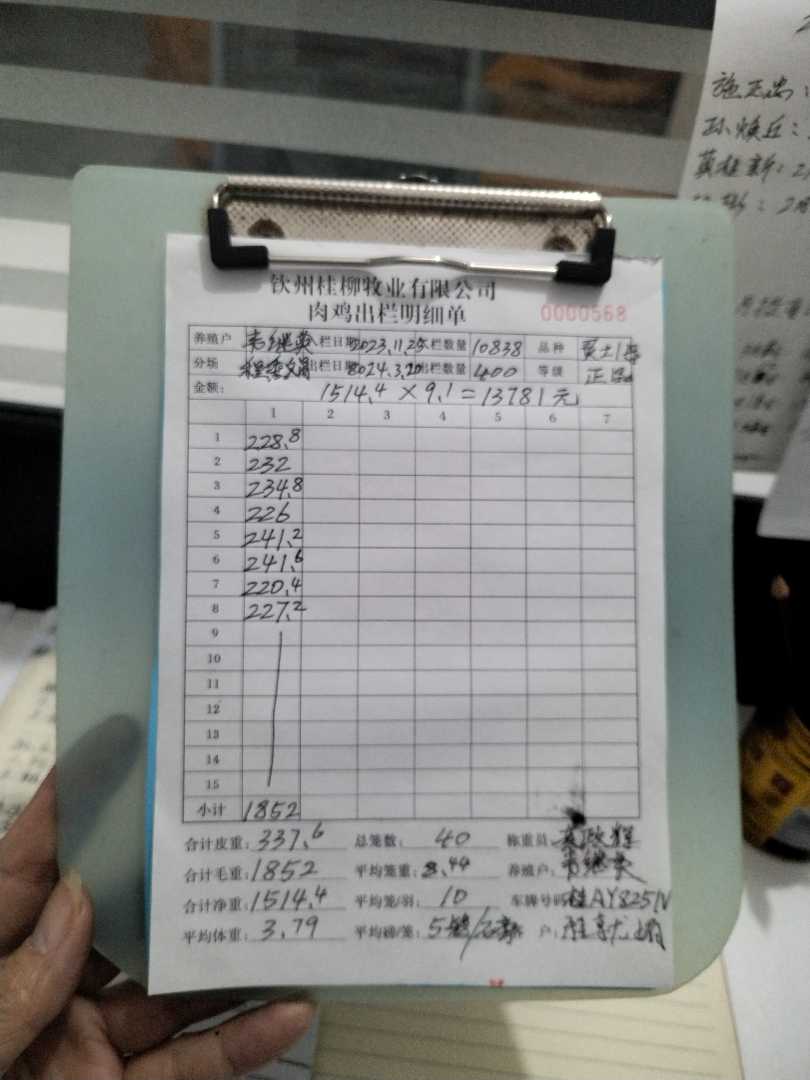 钦州桂柳牧业有限公司
肉鸡出栏明细单 0000568
养殖户 韦继英 入栏日期 2023.11.25 入栏数量 10838 品种
分场 出栏日期 2024.3.20 出栏数量 400 等级 正品
金额: 1514.4 × 9.1 = 13781元
1 2 3 4 5 6 7
1 228.8
2 232
3 234.8
4 226
5 241.2
6 241.6
7 220.4
8 227.2
9
10
11
12
13
14
15
小计 1852
合计皮重: 337.6 总笼数: 40 称重员
合计毛重: 1852 平均笼重: 8.44 养殖户: 韦继英
合计净重: 1514.4 平均笼/羽: 10 车牌号码 桂AY825N
平均体重: 3.79 平均磅/笼: 5 户:
施
孙焕丘: